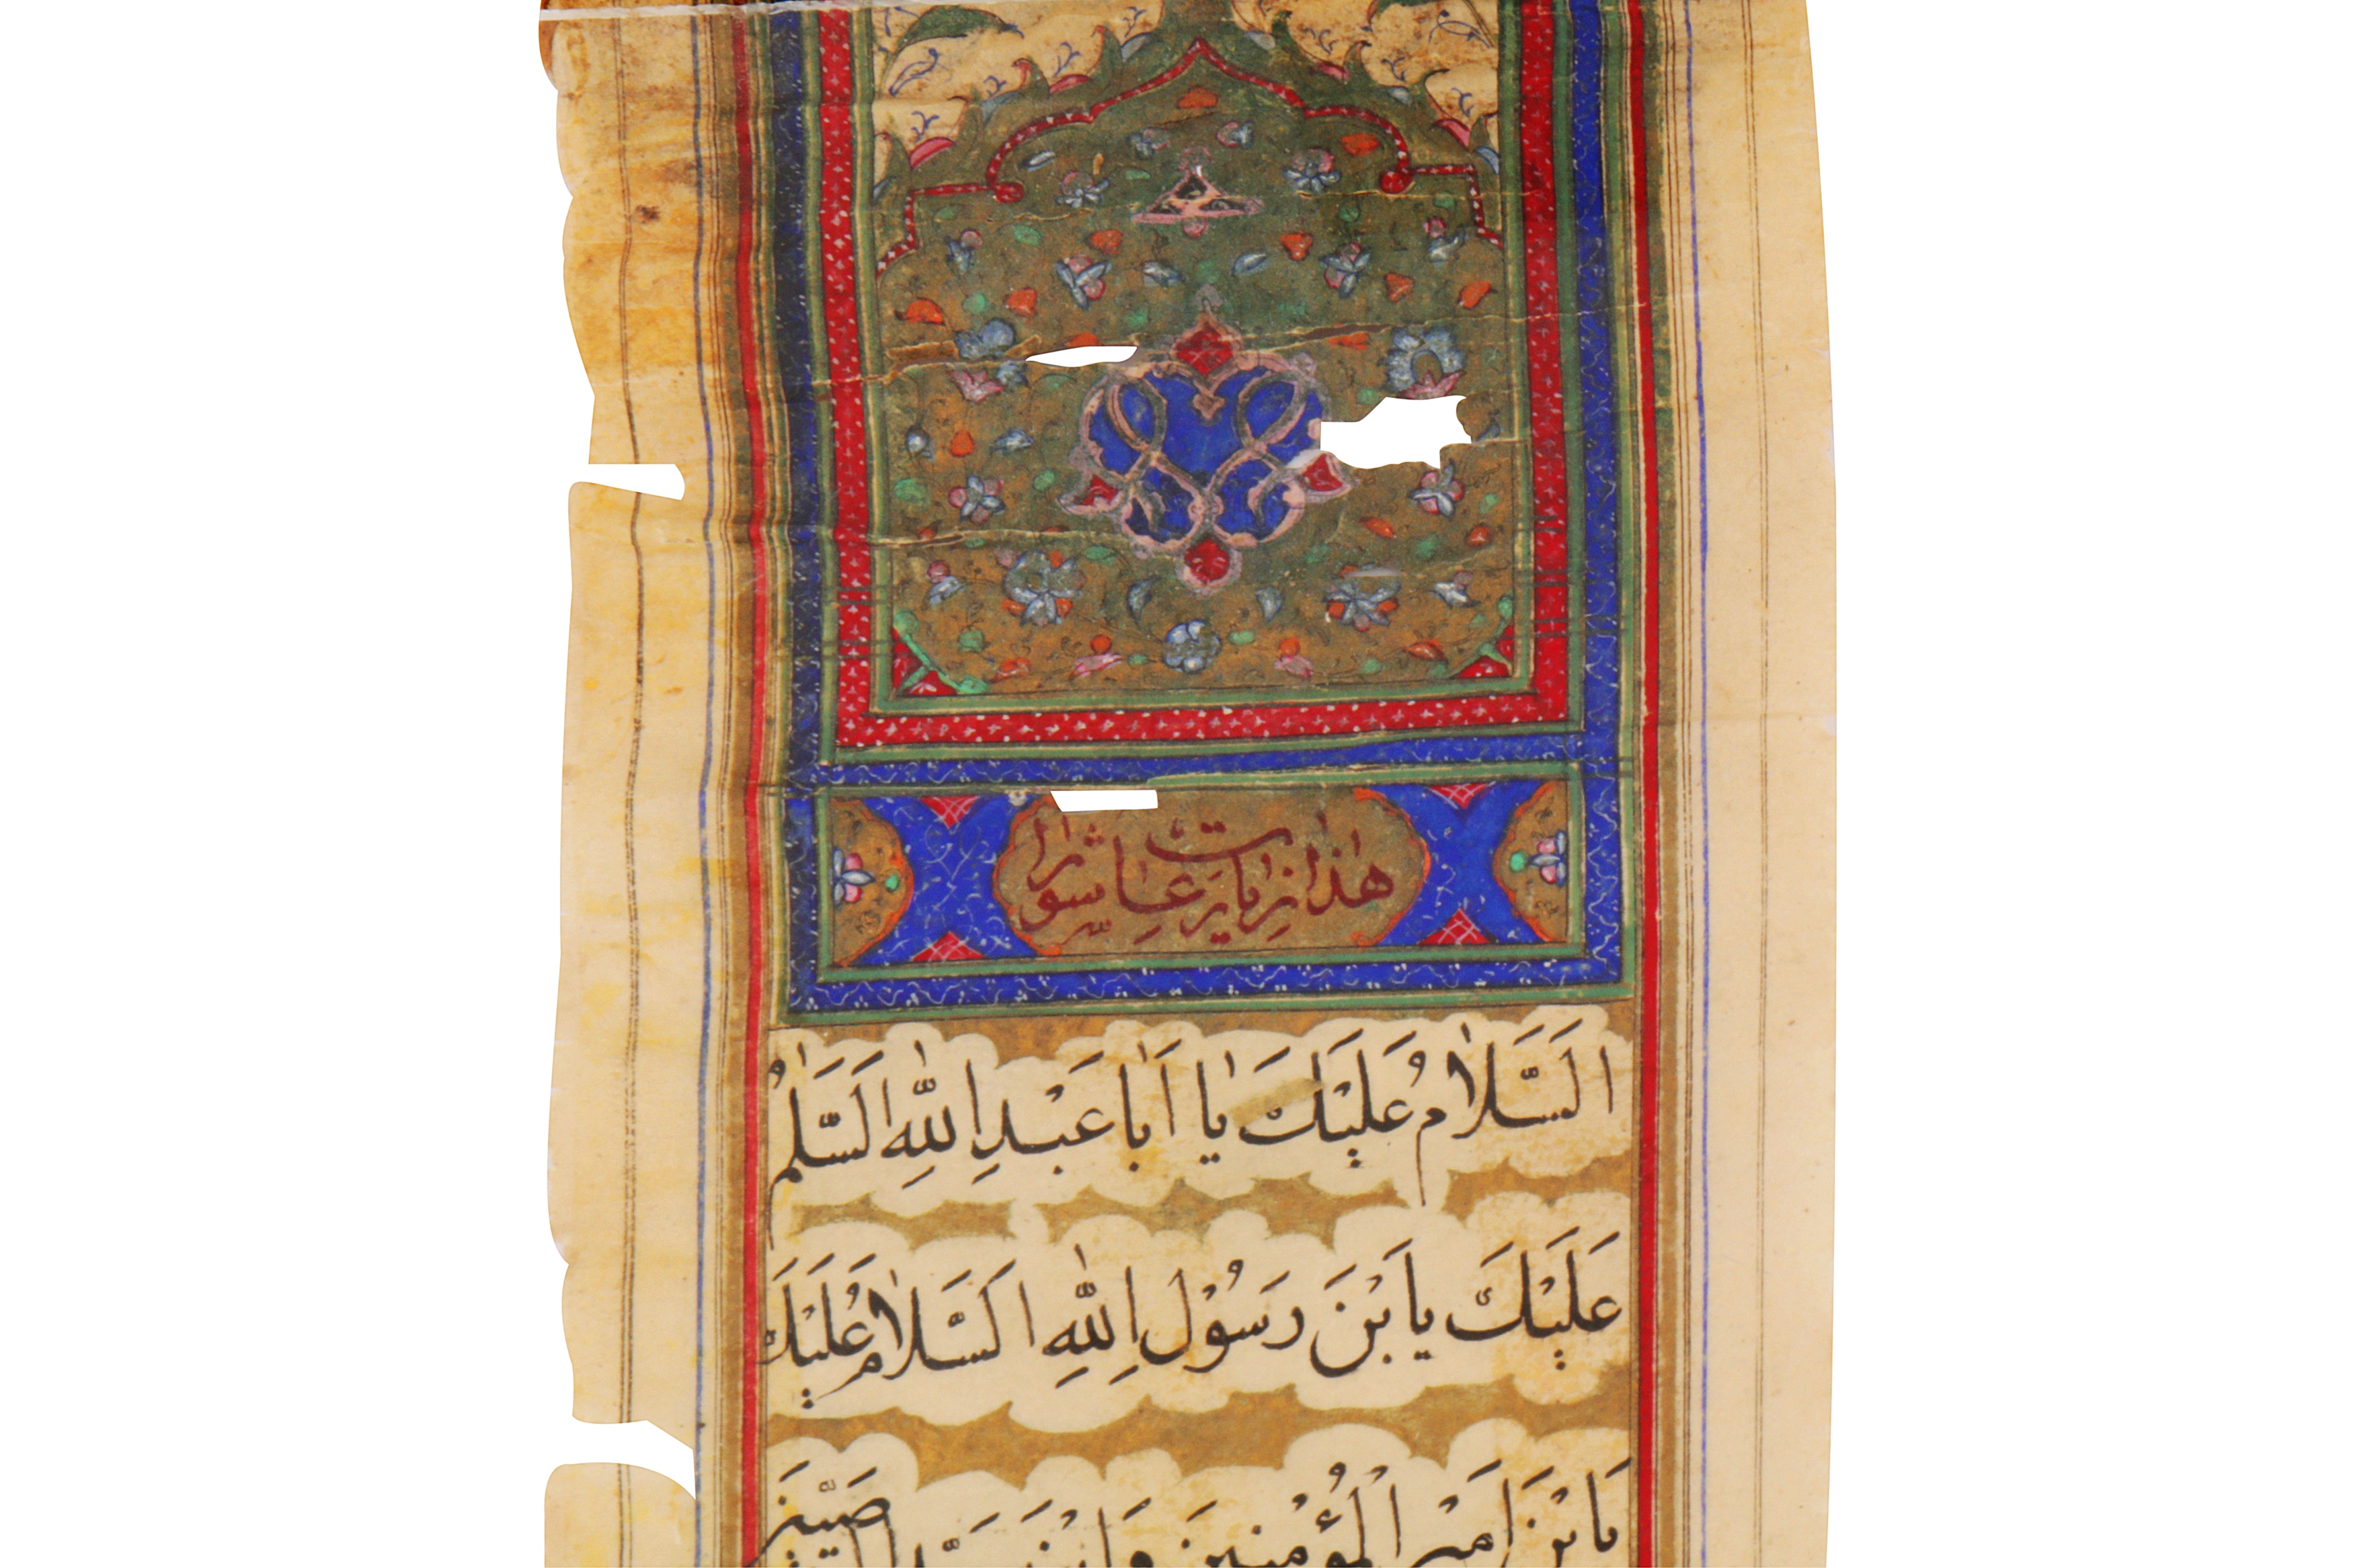 هٰذا زیارت عاشورا
اَلسَّلاٰمُ عَلَیْكَ یٰا اَبٰا عَبْدِ اللّٰهِ اَلسَّلٰمُ
عَلَیْكَ یا بْنَ رَسُوْلِ اللّٰهِ اَلسَّلاٰمُ عَلَیْكَ
یَا بْنَ اَمیْرِ الْمُؤْمِنینَ وَ ابْنَ سَیِّدِ الْوَصِیّینَ